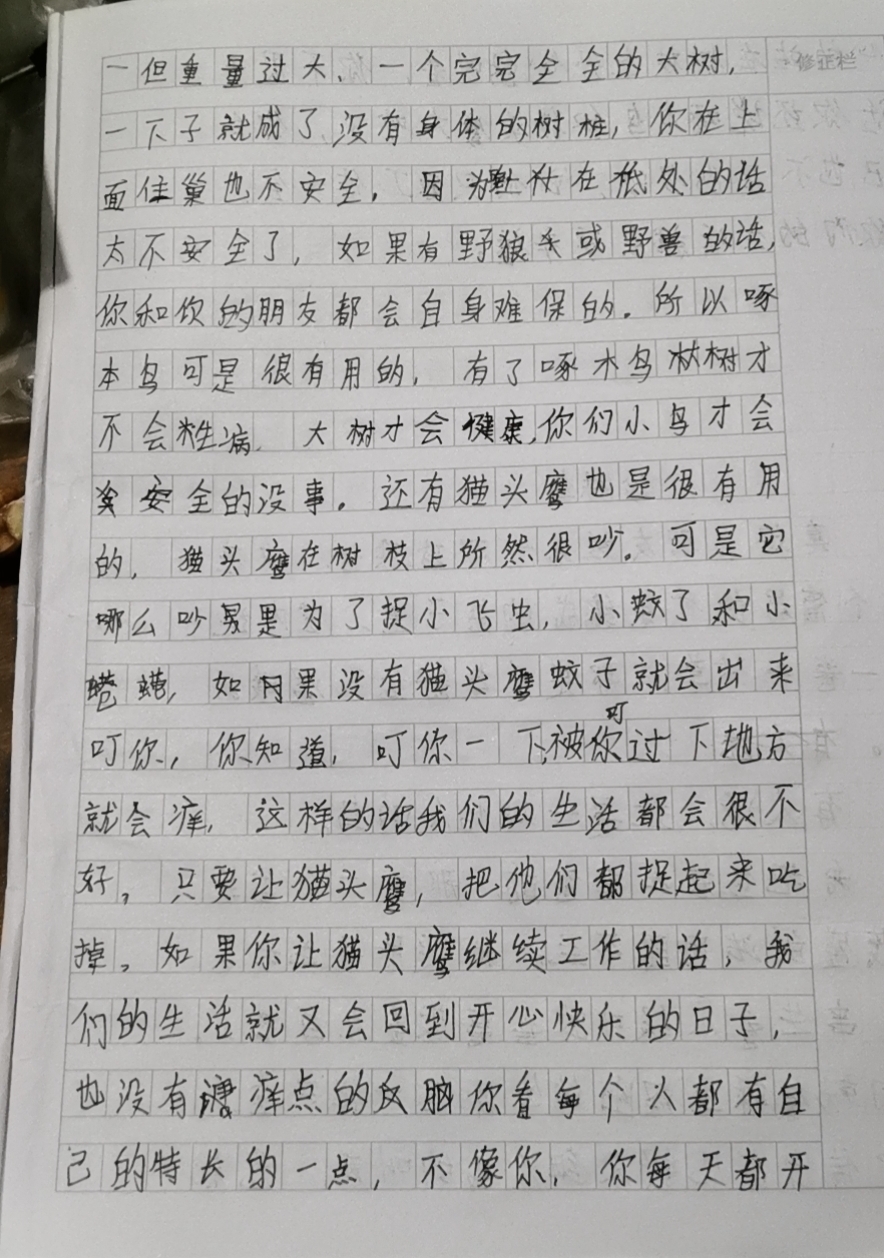 一但重量过大、一个完完全全的大树,
修正栏
一下子就成了没有身体的树桩,你在上
面住巢也不安全,因为在低处的话
太不安全了,如果有野狼或野兽的话,
你和你的朋友都会自身难保的。所以啄
本鸟可是很有用的,有了啄木鸟树才
不会生病,大树才会健康,你们小鸟才会
安全的没事。还有猫头鹰也是很有用
的,猫头鹰在树枝上所然很吵。可是它
哪么吵是为了捉小飞虫,小蚊了和小
如果没有猫头鹰蚊子就会出来
叮你,你知道,叮你一下,被你叮过下地方
就会痒,这样的话我们的生活都会很不
好,只要让猫头鹰,把他们都捉起来吃
掉。如果你让猫头鹰继续工作的话,我
们的生活就又会回到开心快乐的日子,
也没有痒点的反脑你看每个人都有自
己的特长的一点,不像你,你每天都开